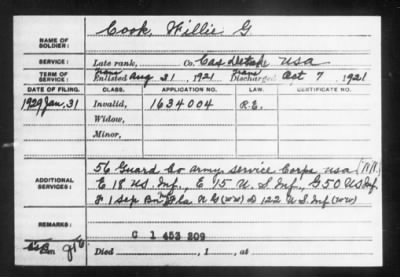 NAME OF SOLDIER: Cook, Willie G
SERVICE: Late rank, Co. Cas Detch USA
TERM OF SERVICE: Trans Enlisted Aug 31, 1921 Trans Discharged Oct 7, 1921
DATE OF FILING. CLASS. APPLICATION NO. LAW. CERTIFICATE NO.
1929 Jan. 31 Invalid, 1634004 R.E.
Widow,
Minor,
ADDITIONAL SERVICES: 56 Guard Co Army Service Corps USA (WW)
E 18 US. Inf., E 15 U.S Inf., G 50 US Inf.
F 1 Sep Bn Fla N G (WW) D 122 U S Inf (WW)
REMARKS: C 1 453 209
Died , 1 , at